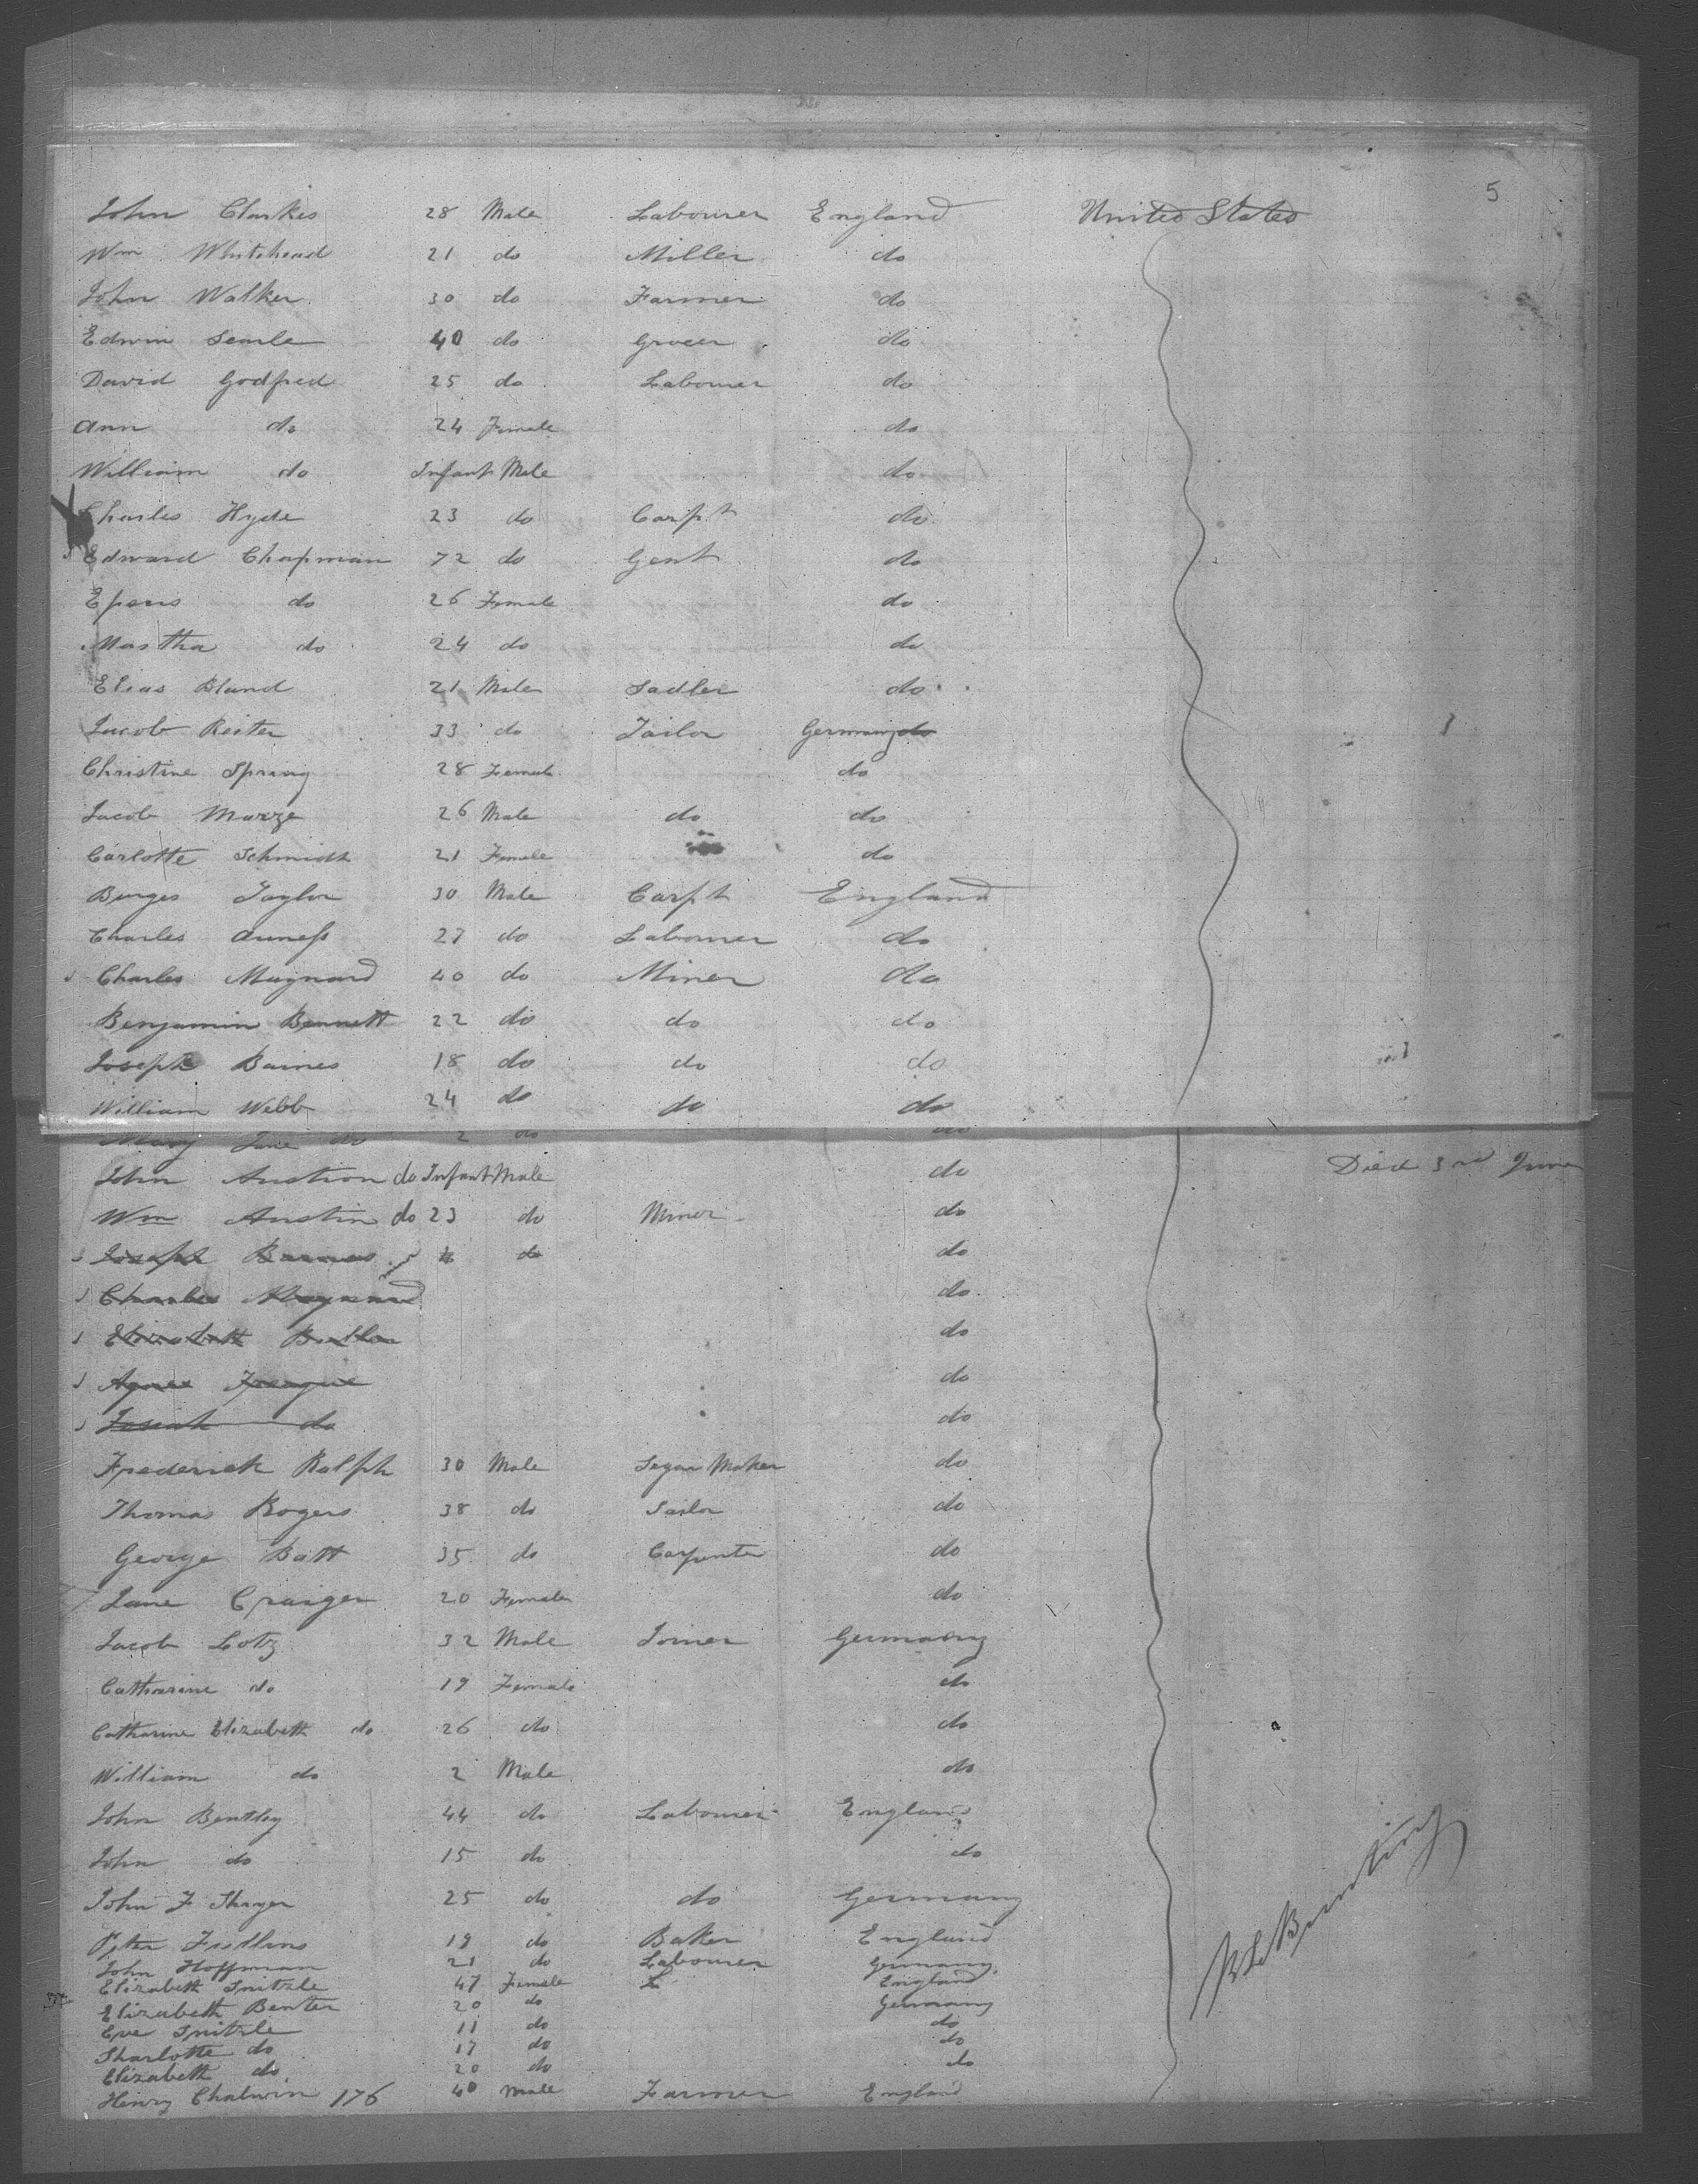 5
John Clarkes 28 Male Labourer England United States
Wm Whitehead 21 do Miller do
John Walker 30 do Farmer do
Edwin Searle 40 do Grocer do
David Godfred 25 do Labourer do
Ann do 24 Female do
William do Infant Male do
Charles Hyde 23 do Carpt do
Edward Chapman 72 do Gent do
do 26 Female do
Martha do 24 do do
Elias Bland 21 Male Sadler do
Jacob Reiter 33 do Tailor Germany do
Christine Spring 28 Female do
Jacob Marze 26 Male do do
Carlotte Schmidt 21 Female do
Burges Taylor 30 Male Carpt England
Charles 27 do Labourer do
Charles Maynard 40 do Miner do
Benjamin Bennett 22 do do do
Joseph Barnes 18 do do do
William Webb 24 do do do
Mary Jane do 2 do do
John Austion do Infant Male do Died 3rd June
Wm Austin do 23 do Miner do
Joseph Barnes do do
Charles Maynard do
Elizabeth do
Agnes do
Josiah do do
Frederick Ralph 30 Male Segar Maker do
Thomas Rogers 38 do Sailor do
George Batt 35 do Carpenter do
Jane Craiger 20 Female do
Jacob Lotz 32 Male Joiner Germany
Catharine do 19 Female do
Catharine Elizabeth do 26 do do
William do 2 Male do
John Bentley 44 do Labourer England
John do 15 do do
John F Thayer 25 do do Germany
Peter 19 do Baker England
John Hoffman 21 do Labourer Germany
Elizabeth Snitzle 47 Female L England
Elizabeth Benter 20 do Germany
Eve Snitzle 11 do do
Sharlotte do 17 do do
Elizabeth do 20 do do
Henry Chalwin 176 40 Male Farmer England
Bunting